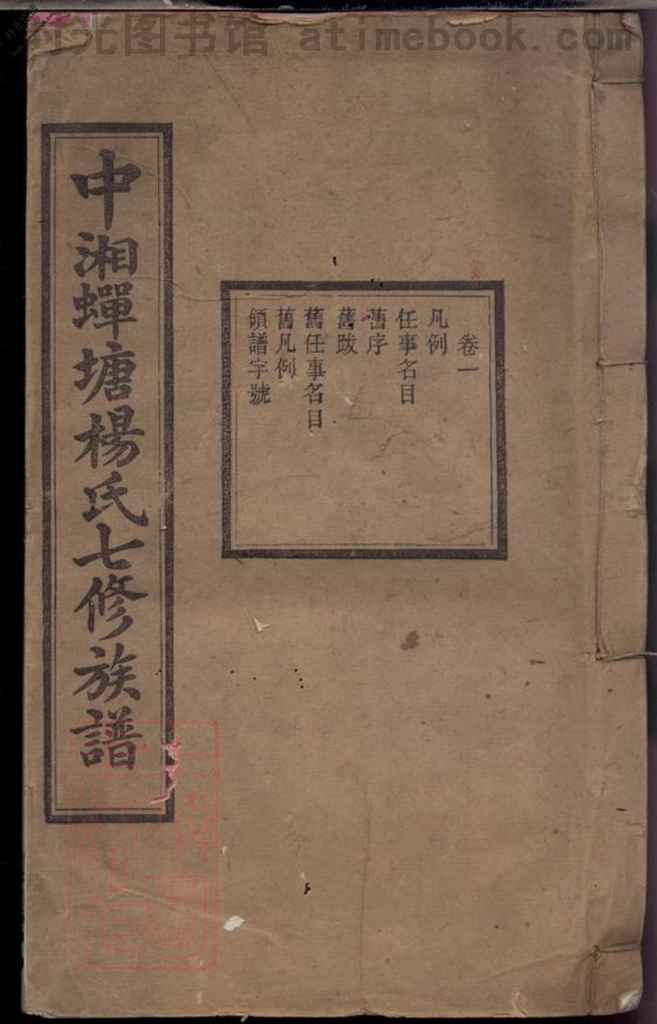 时光图书馆 atimebook.com
中湘蟬塘楊氏七修族譜
卷一
凡例
任事名目
舊序
舊跋
舊任事名目
舊凡例
領譜字號